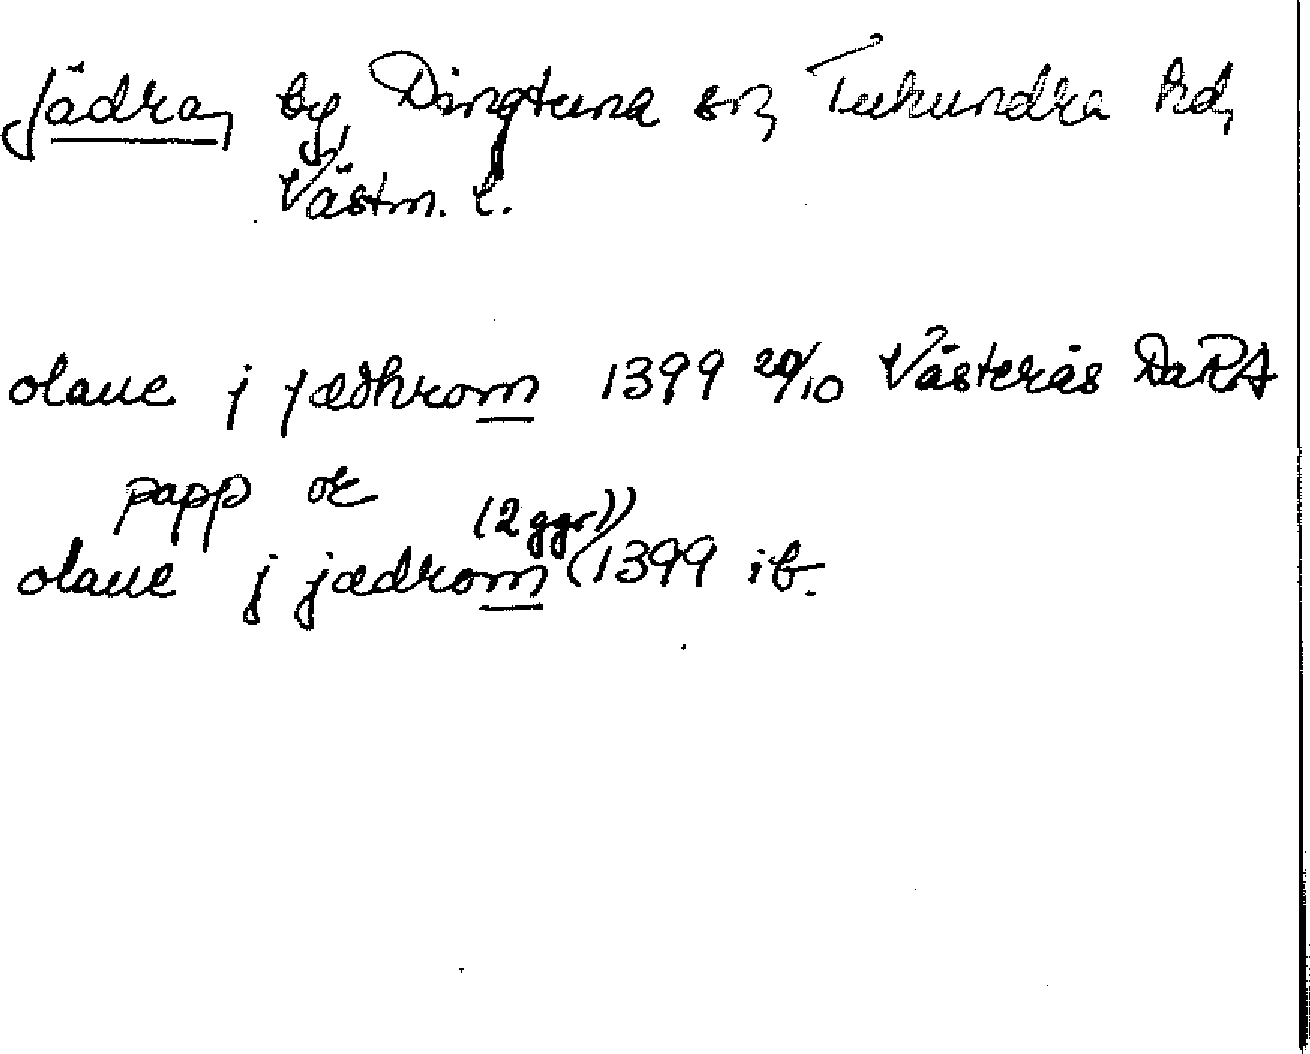 Jädra, by, Dingtuna sn, Tuhundra hd,
Västm. l.
olaue j jædhrom 1399 20/10 Västerås DaRA
papp or
olaue j jædrom (2 ggr)) (1399 ib.